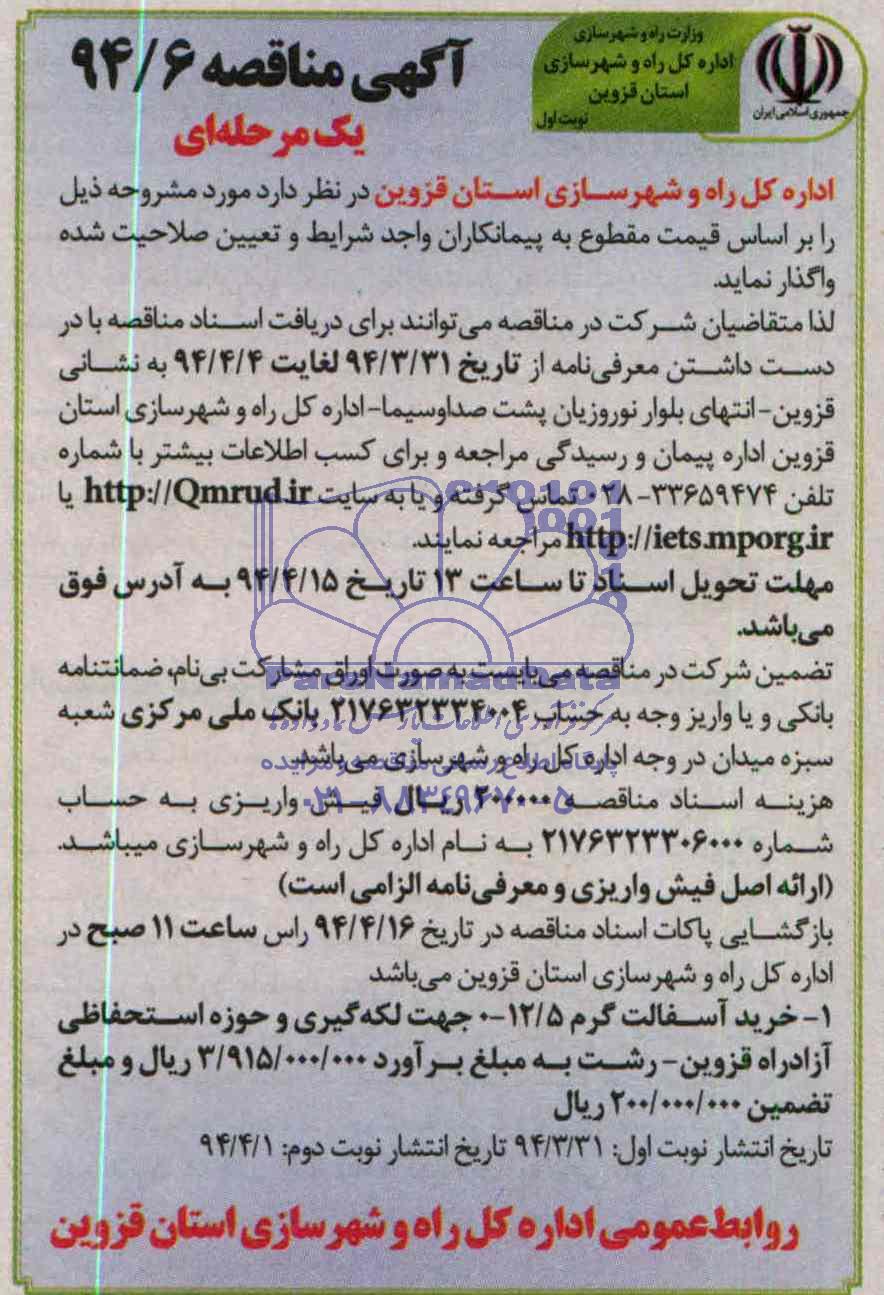 وزارت راه و شهرسازی
اداره کل راه و شهرسازی
استان قزوین
نوبت اول
جمهوری اسلامی ایران
آگهی مناقصه ۹۴/۶
یک مرحله‌ای
اداره کل راه و شهرسازی استان قزوین در نظر دارد مورد مشروحه ذیل
را بر اساس قیمت مقطوع به پیمانکاران واجد شرایط و تعیین صلاحیت شده
واگذار نماید.
لذا متقاضیان شرکت در مناقصه می‌توانند برای دریافت اسناد مناقصه با در
دست داشتن معرفی‌نامه از تاریخ ۹۴/۳/۳۱ لغایت ۹۴/۴/۴ به نشانی
قزوین-انتهای بلوار نوروزیان پشت صداوسیما-اداره کل راه و شهرسازی استان
قزوین اداره پیمان و رسیدگی مراجعه و برای کسب اطلاعات بیشتر با شماره
تلفن ۳۳۶۵۹۴۷۴-۰۲۸ تماس گرفته و یا به سایت http://Qmrud.ir یا
http://iets.mporg.ir مراجعه نمایند.
مهلت تحویل اسناد تا ساعت ۱۳ تاریخ ۹۴/۴/۱۵ به آدرس فوق
می‌باشد.
تضمین شرکت در مناقصه می‌بایست به صورت اوراق مشارکت بی‌نام، ضمانتنامه
بانکی و یا واریز وجه به حساب ۲۱۷۶۳۲۳۳۴۰۰۴ بانک ملی مرکزی شعبه
سبزه میدان در وجه اداره کل راه و شهرسازی می‌باشد.
هزینه اسناد مناقصه ۲۰۰۰۰۰ ریال فیش واریزی به حساب
شماره ۲۱۷۶۳۲۳۳۰۶۰۰۰ به نام اداره کل راه و شهرسازی میباشد.
(ارائه اصل فیش واریزی و معرفی‌نامه الزامی است)
بازگشایی پاکات اسناد مناقصه در تاریخ ۹۴/۴/۱۶ راس ساعت ۱۱ صبح در
اداره کل راه و شهرسازی استان قزوین می‌باشد
۱- خرید آسفالت گرم ۱۲/۵-۰ جهت لکه‌گیری و حوزه استحفاظی
آزادراه قزوین- رشت به مبلغ برآورد ۳/۹۱۵/۰۰۰/۰۰۰ ریال و مبلغ
تضمین ۲۰۰/۰۰۰/۰۰۰ ریال
تاریخ انتشار نوبت اول: ۹۴/۳/۳۱ تاریخ انتشار نوبت دوم: ۹۴/۴/۱
روابط عمومی اداره کل راه و شهرسازی استان قزوین
ParsNamadData
پایگاه اطلاع رسانی مناقصه و مزایده
۰۲۱-۸۸۳۴۹۶۷۰-۵